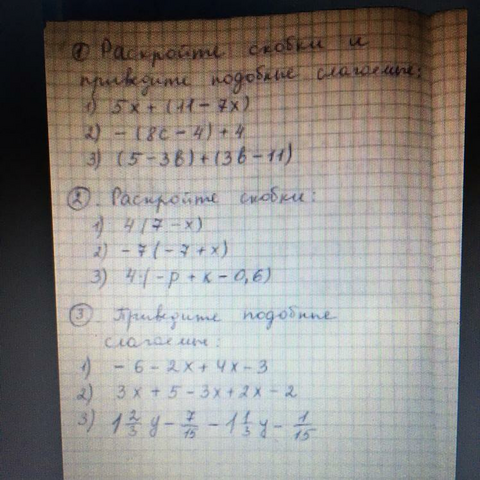 ① Раскройте скобки и
приведите подобные слагаемые:
1) 5x + (11 - 7x)
2) - (8c - 4) + 4
3) (5 - 3в) + (3в - 11)
②. Раскройте скобки:
1) 4(7 - x)
2) - 7(- 7 + x)
3) 4·(- p + к - 0,6)
③ Приведите подобные
слагаемые:
1) - 6 - 2x + 4x - 3
2) 3x + 5 - 3x + 2x - 2
3) 1 2/3 y - 7/15 - 1 1/3 y - 1/15